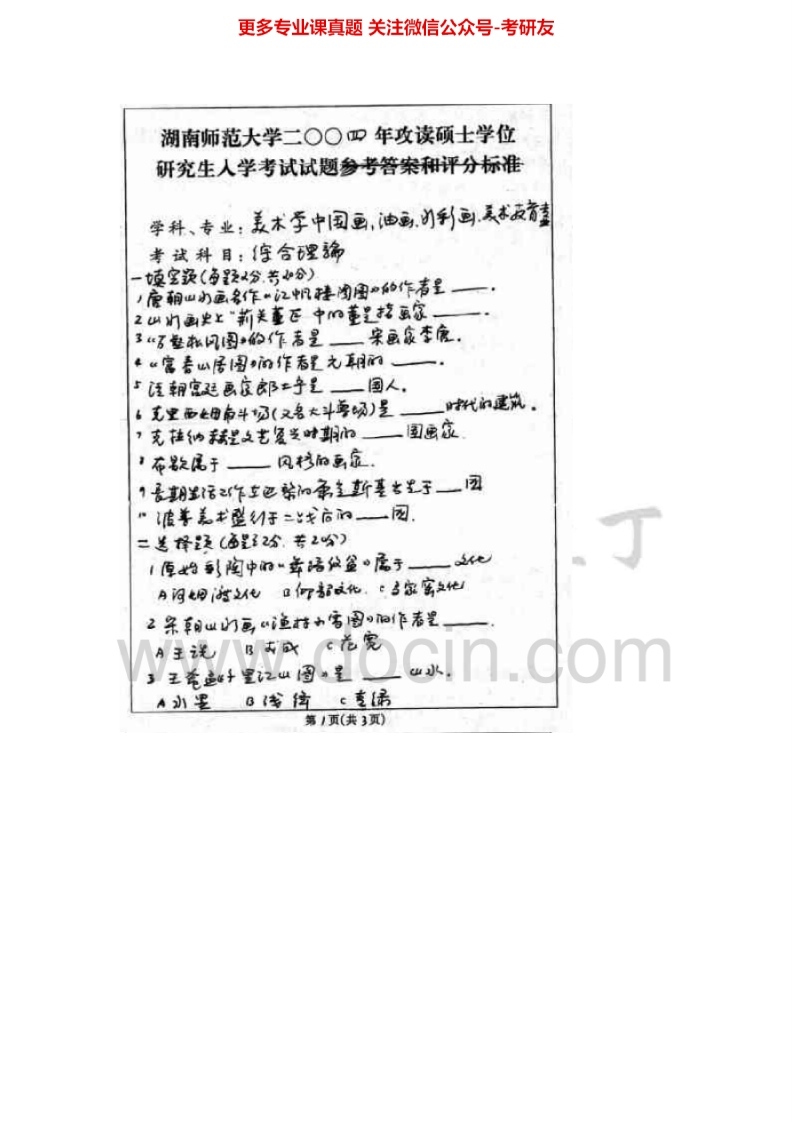 更多专业课真题 关注微信公众号-考研友
湖南师范大学二〇〇四年攻读硕士学位
研究生入学考试试题参考答案和评分标准
学科、专业：美术学中国画，油画，水彩画，美术教育
考试科目：综合理論
一 填空题（每题2分，共20分）
1 唐朝山水画名作《江帆楼阁图》的作者是____。
2 山水画史上"荆关董巨"中的董是指画家____。
3 《万壑松风图》的作者是____宋画家李唐。
4 《富春山居图》的作者是元朝的____。
5 清朝宫廷画家郎世宁是____国人。
6 克里西姆角斗场（又名大斗兽场）是____时代的建筑。
7 克拉纳赫是文艺复兴时期的____国画家
8 布歇属于____风格的画家.
9 长期生活工作在巴黎的 出生于____国
10 波普美术盛行于二战后的____国.
二 选择题（每题2分，共20分）
1 原始彩陶中的《舞蹈纹盆》属于____文化
A 河姆渡文化 B 仰韶文化. C 马家窑文化
2 宋朝山水画《渔村小雪图》的作者是____.
A 王诜 B 李成 C 范宽
3 王希孟《千里江山图》是____山水.
A 水墨 B 浅绛 C 青绿
第1页(共3页)
www.docin.com